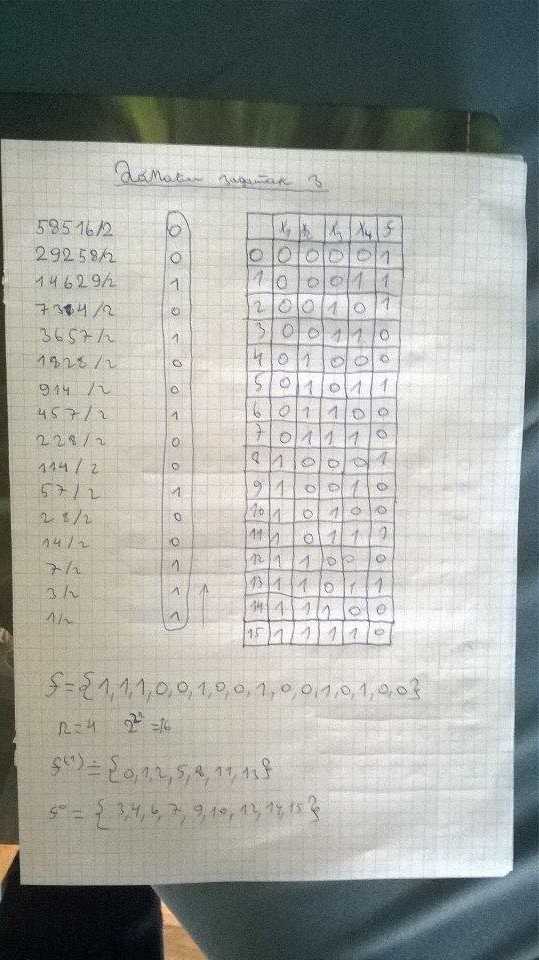 Домаћи задатак 3
58516/2 0
29258/2 0
14629/2 1
7314/2 0
3657/2 1
1828/2 0
914/2 0
457/2 1
228/2 0
114/2 0
57/2 1
28/2 0
14/2 0
7/2 1
3/2 1
1/2 1
x1 x2 x3 x4 f
0 0 0 0 0 1
1 0 0 0 1 1
2 0 0 1 0 1
3 0 0 1 1 0
4 0 1 0 0 0
5 0 1 0 1 1
6 0 1 1 0 0
7 0 1 1 1 0
8 1 0 0 0 1
9 1 0 0 1 0
10 1 0 1 0 0
11 1 0 1 1 1
12 1 1 0 0 0
13 1 1 0 1 1
14 1 1 1 0 0
15 1 1 1 1 0
f={1,1,1,0,0,1,0,0,1,0,0,1,0,1,0,0}
n=4 2^2^n=16
f(1)={0,1,2,5,8,11,13}
f0={3,4,6,7,9,10,12,14,15}